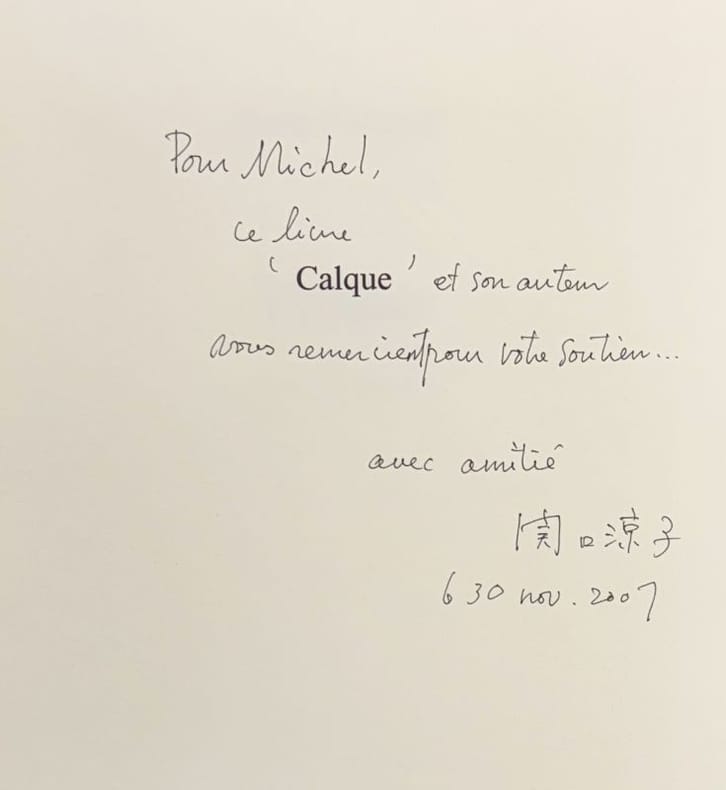 Pour Michel,
ce livre
' Calque ' et son auteur
vous remercient pour votre soutien...
avec amitié
関口涼子
le 30 nov. 2007